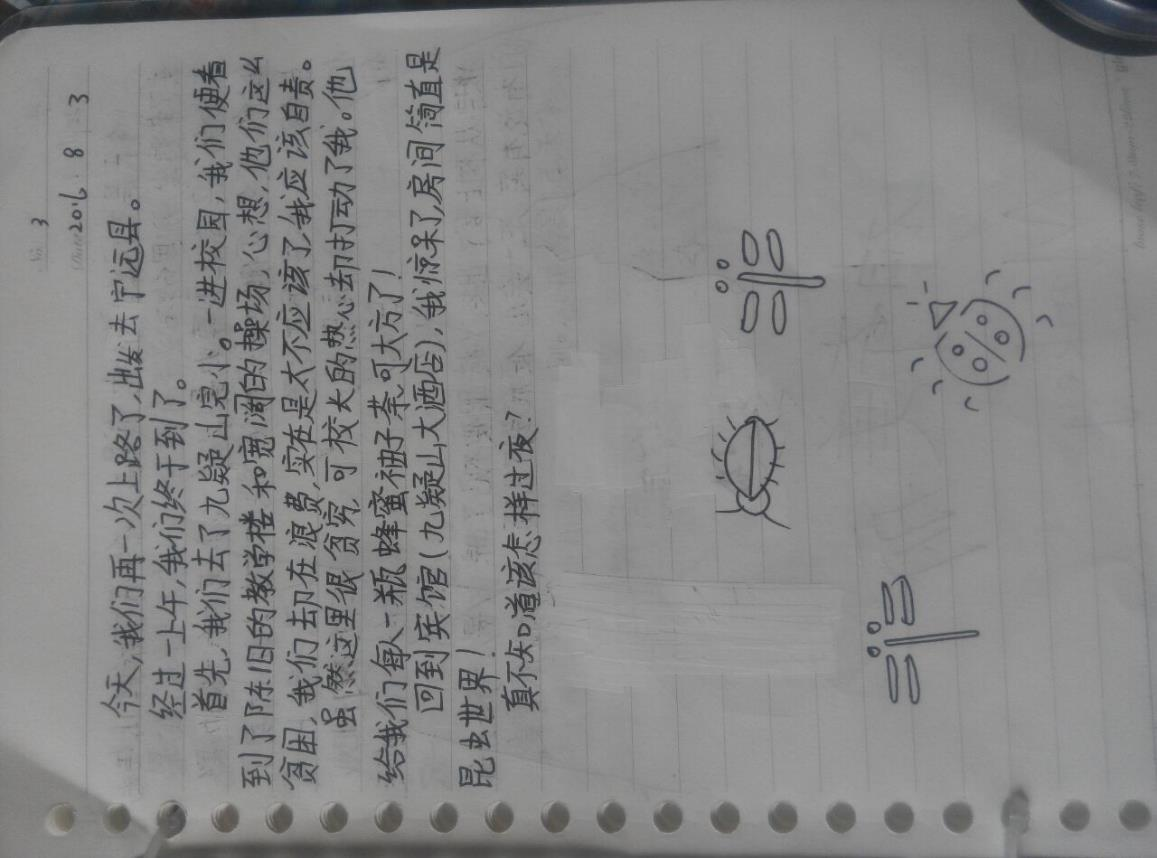 3
2016 8 3
今天,我们再一次上路了,出发去宁远县。
经过一上午,我们终于到了。
首先,我们去了九疑山完小。一进校园,我们便看
到了陈旧的教学楼和宽阔的操场,心想,他们这么
贫困,我们却在浪费,实在是太不应该了,我应该自责。
虽然这里很贫穷,可校长的热心却打动了我。他
给我们每人一瓶蜂蜜柚子茶,可大方了!
回到宾馆(九疑山大酒店),我惊呆了,房间简直是
昆虫世界!
真不知道该怎样过夜?